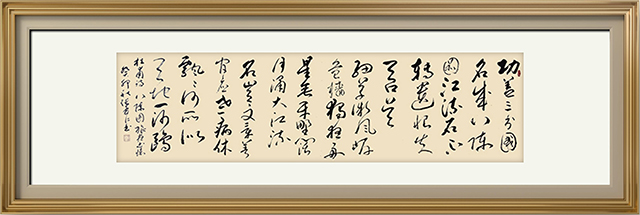 功盖三分國
名成八陣
圖江流石不
轉遺恨失
吞吴
细草微風岸
危樯獨夜舟
星垂平野阔
月涌大江流
名岂文章著
官应老病休
飘飘何所似
天地一沙鸥
杜甫诗八陣图旅夜书怀
癸卯秋